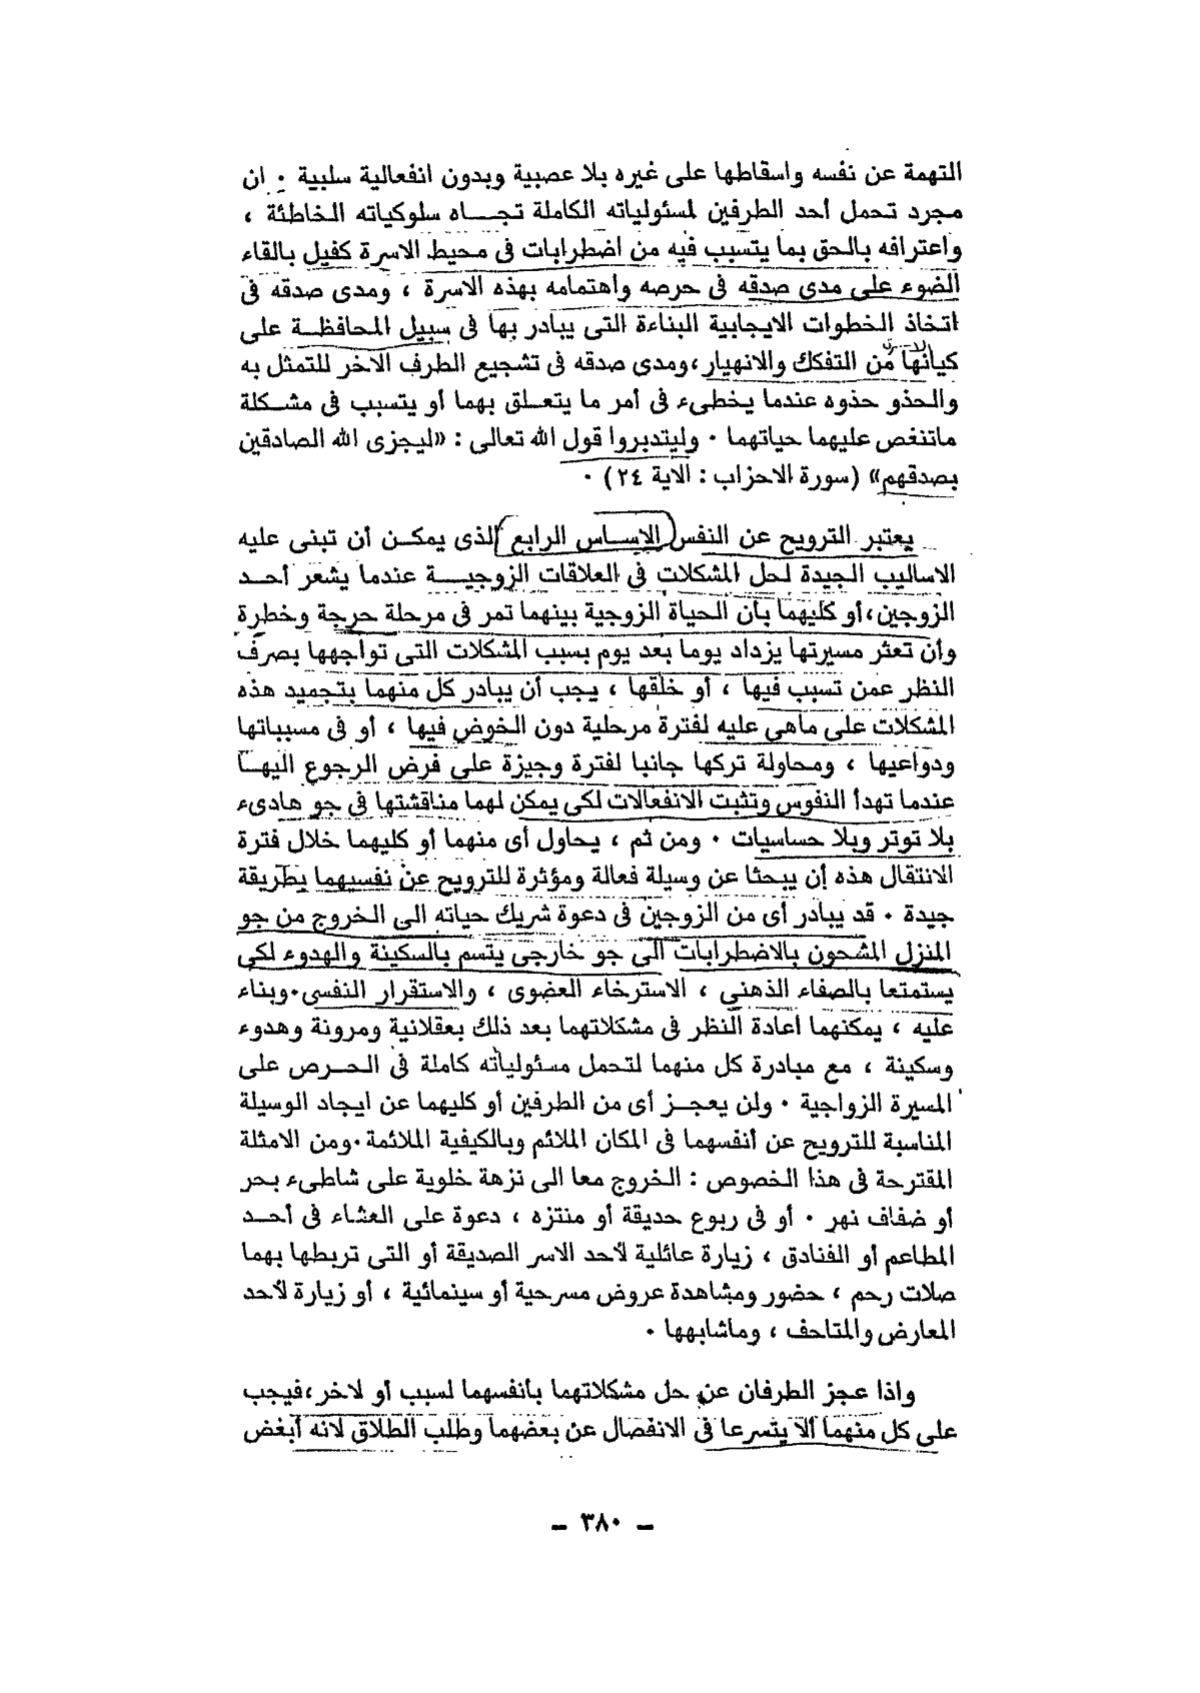 التهمة عن نفسه واسقاطها على غيره بلا عصبية وبدون انفعالية سلبية ٠ ان
مجرد تحمل أحد الطرفين لمسئولياته الكاملة تجـــاه سلوكياته الخاطئة ،
واعترافه بالحق بما يتسبب فيه من اضطرابات فى محيط الاسرة كفيل بالقاء
الضوء على مدى صدقه فى حرصه واهتمامه بهذه الاسرة ، ومدى صدقه فى
اتخاذ الخطوات الايجابية البناءة التى يبادر بها فى سبيل المحافظــة على
كيانها من التفكك والانهيار، ومدى صدقه فى تشجيع الطرف الاخر للتمثل به
والحذو حذوه عندما يخطىء فى أمر ما يتعلق بهما أو يتسبب فى مشــكلة
ماتنغص عليهما حياتهما ٠ وليتدبروا قول الله تعالى : «ليجزى الله الصادقين
بصدقهم» (سورة الاحزاب : الاية ٢٤) ٠
يعتبر الترويح عن النفس (الاســاس الرابع) الذى يمكــن أن تبنى عليه
الاساليب الجيدة لحل المشكلات فى العلاقات الزوجيـــة عندما يشعر أحــد
الزوجين، أو كليهما بأن الحياة الزوجية بينهما تمر فى مرحلة حرجة وخطرة
وأن تعثر مسيرتها يزداد يوما بعد يوم بسبب المشكلات التى تواجهها بصرف
النظر عمن تسبب فيها ، أو خلقها ، يجب أن يبادر كل منهما بتجميد هذه
المشكلات على ماهى عليه لفترة مرحلية دون الخوض فيها ، أو فى مسبباتها
ودواعيها ، ومحاولة تركها جانبا لفترة وجيزة على فرض الرجوع اليهــا
عندما تهدأ النفوس وتثبت الانفعالات لكى يمكن لهما مناقشتها فى جو هادىء
بلا توتر وبلا حساسيات ٠ ومن ثم ، يحاول أى منهما أو كليهما خلال فترة
الانتقال هذه أن يبحثا عن وسيلة فعالة ومؤثرة للترويح عن نفسيهما بطريقة
جيدة ٠ قد يبادر أى من الزوجين فى دعوة شريك حياته الى الخروج من جو
المنزل المشحون بالاضطرابات الى جو خارجى يتسم بالسكينة والهدوء لكى
يستمتعا بالصفاء الذهنى ، الاسترخاء العضوى ، والاستقرار النفسى ٠ وبناء
عليه ، يمكنهما اعادة النظر فى مشكلاتهما بعد ذلك بعقلانية ومرونة وهدوء
وسكينة ، مع مبادرة كل منهما لتحمل مسئولياته كاملة فى الحــرص على
المسيرة الزواجية ٠ ولن يعجــز أى من الطرفين أو كليهما عن ايجاد الوسيلة
المناسبة للترويح عن أنفسهما فى المكان الملائم وبالكيفية الملائمة ٠ ومن الامثلة
المقترحة فى هذا الخصوص : الخروج معا الى نزهة خلوية على شاطىء بحر
أو ضفاف نهر ٠ أو فى ربوع حديقة أو منتزه ، دعوة على العشاء فى أحــد
المطاعم أو الفنادق ، زيارة عائلية لأحد الاسر الصديقة أو التى تربطها بهما
صلات رحم ، حضور ومشاهدة عروض مسرحية أو سينمائية ، أو زيارة لأحد
المعارض والمتاحف ، وماشابهها ٠
واذا عجز الطرفان عن حل مشكلاتهما بأنفسهما لسبب أو لاخر، فيجب
على كل منهما ألا يتسرعا فى الانفصال عن بعضهما وطلب الطلاق لانه أبغض
ـ ٣٨٠ ـ